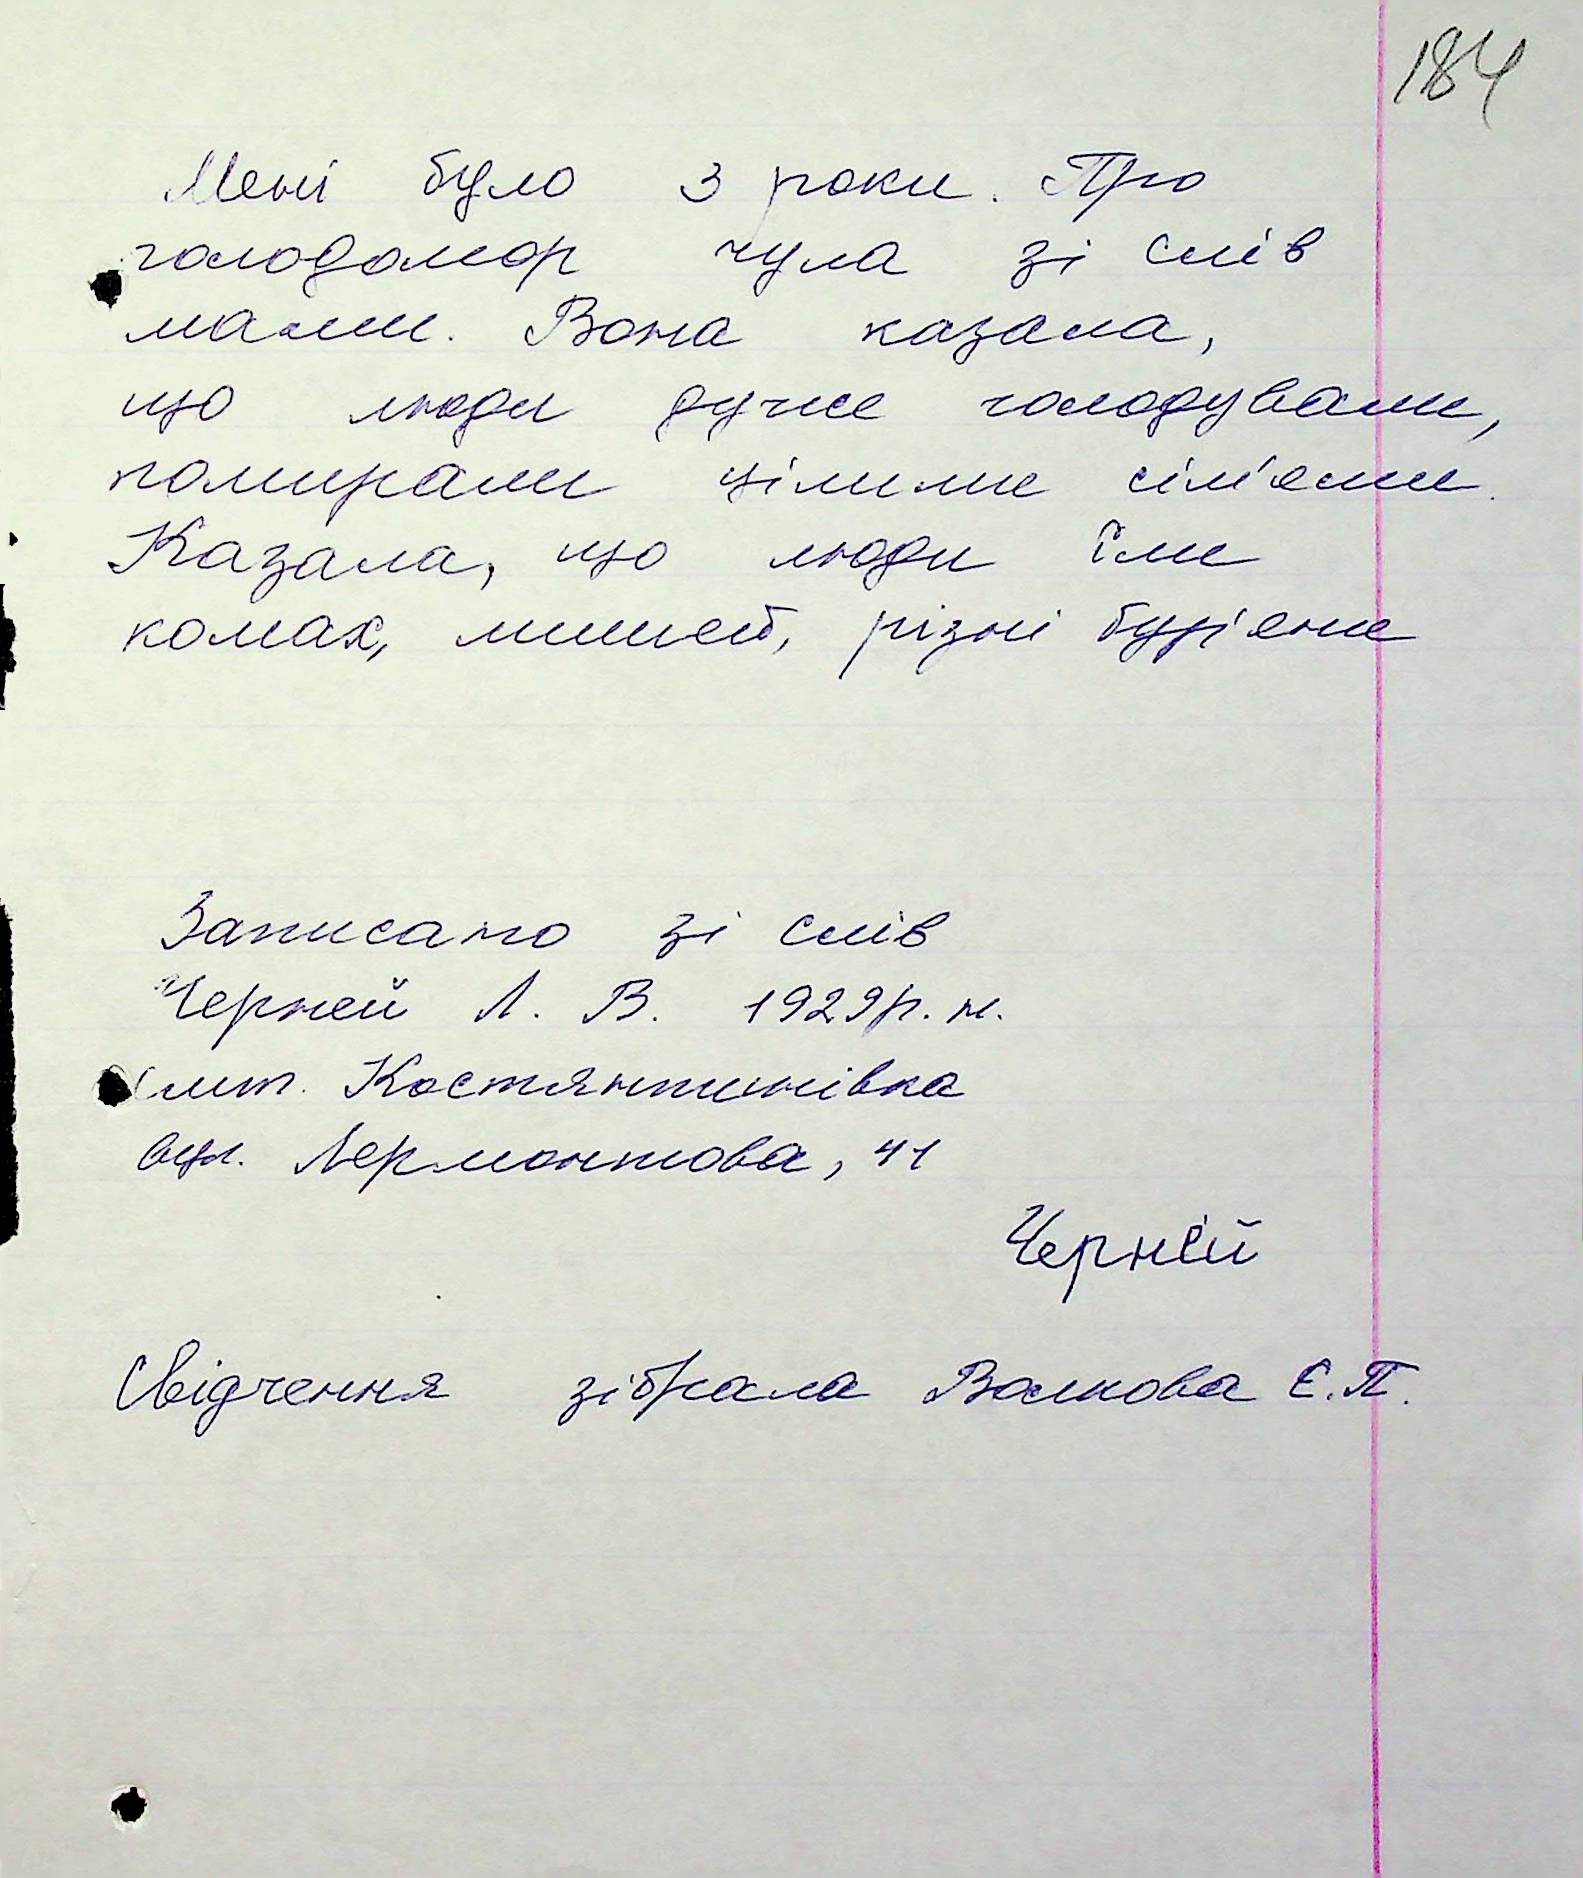 184
Мені було 3 роки. Про
голодомор чула зі слів
мами. Вона казала,
що люди дуже голодували,
помирали цілими сім'ями.
Казала, що люди їли
комах, мишей, різні бур'яни
Записано зі слів
Черней Л. В. 1929р. н.
смт. Костянтинівка
вул. Лермонтова, 41
Черней
Свідчення зібрала Волкова Є.П.